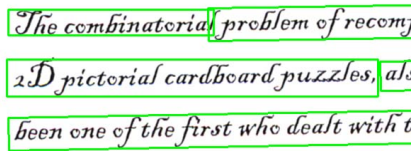 The combinatorial problem of recomp
2D pictorial cardboard puzzles, als
been one of the first who dealt with t